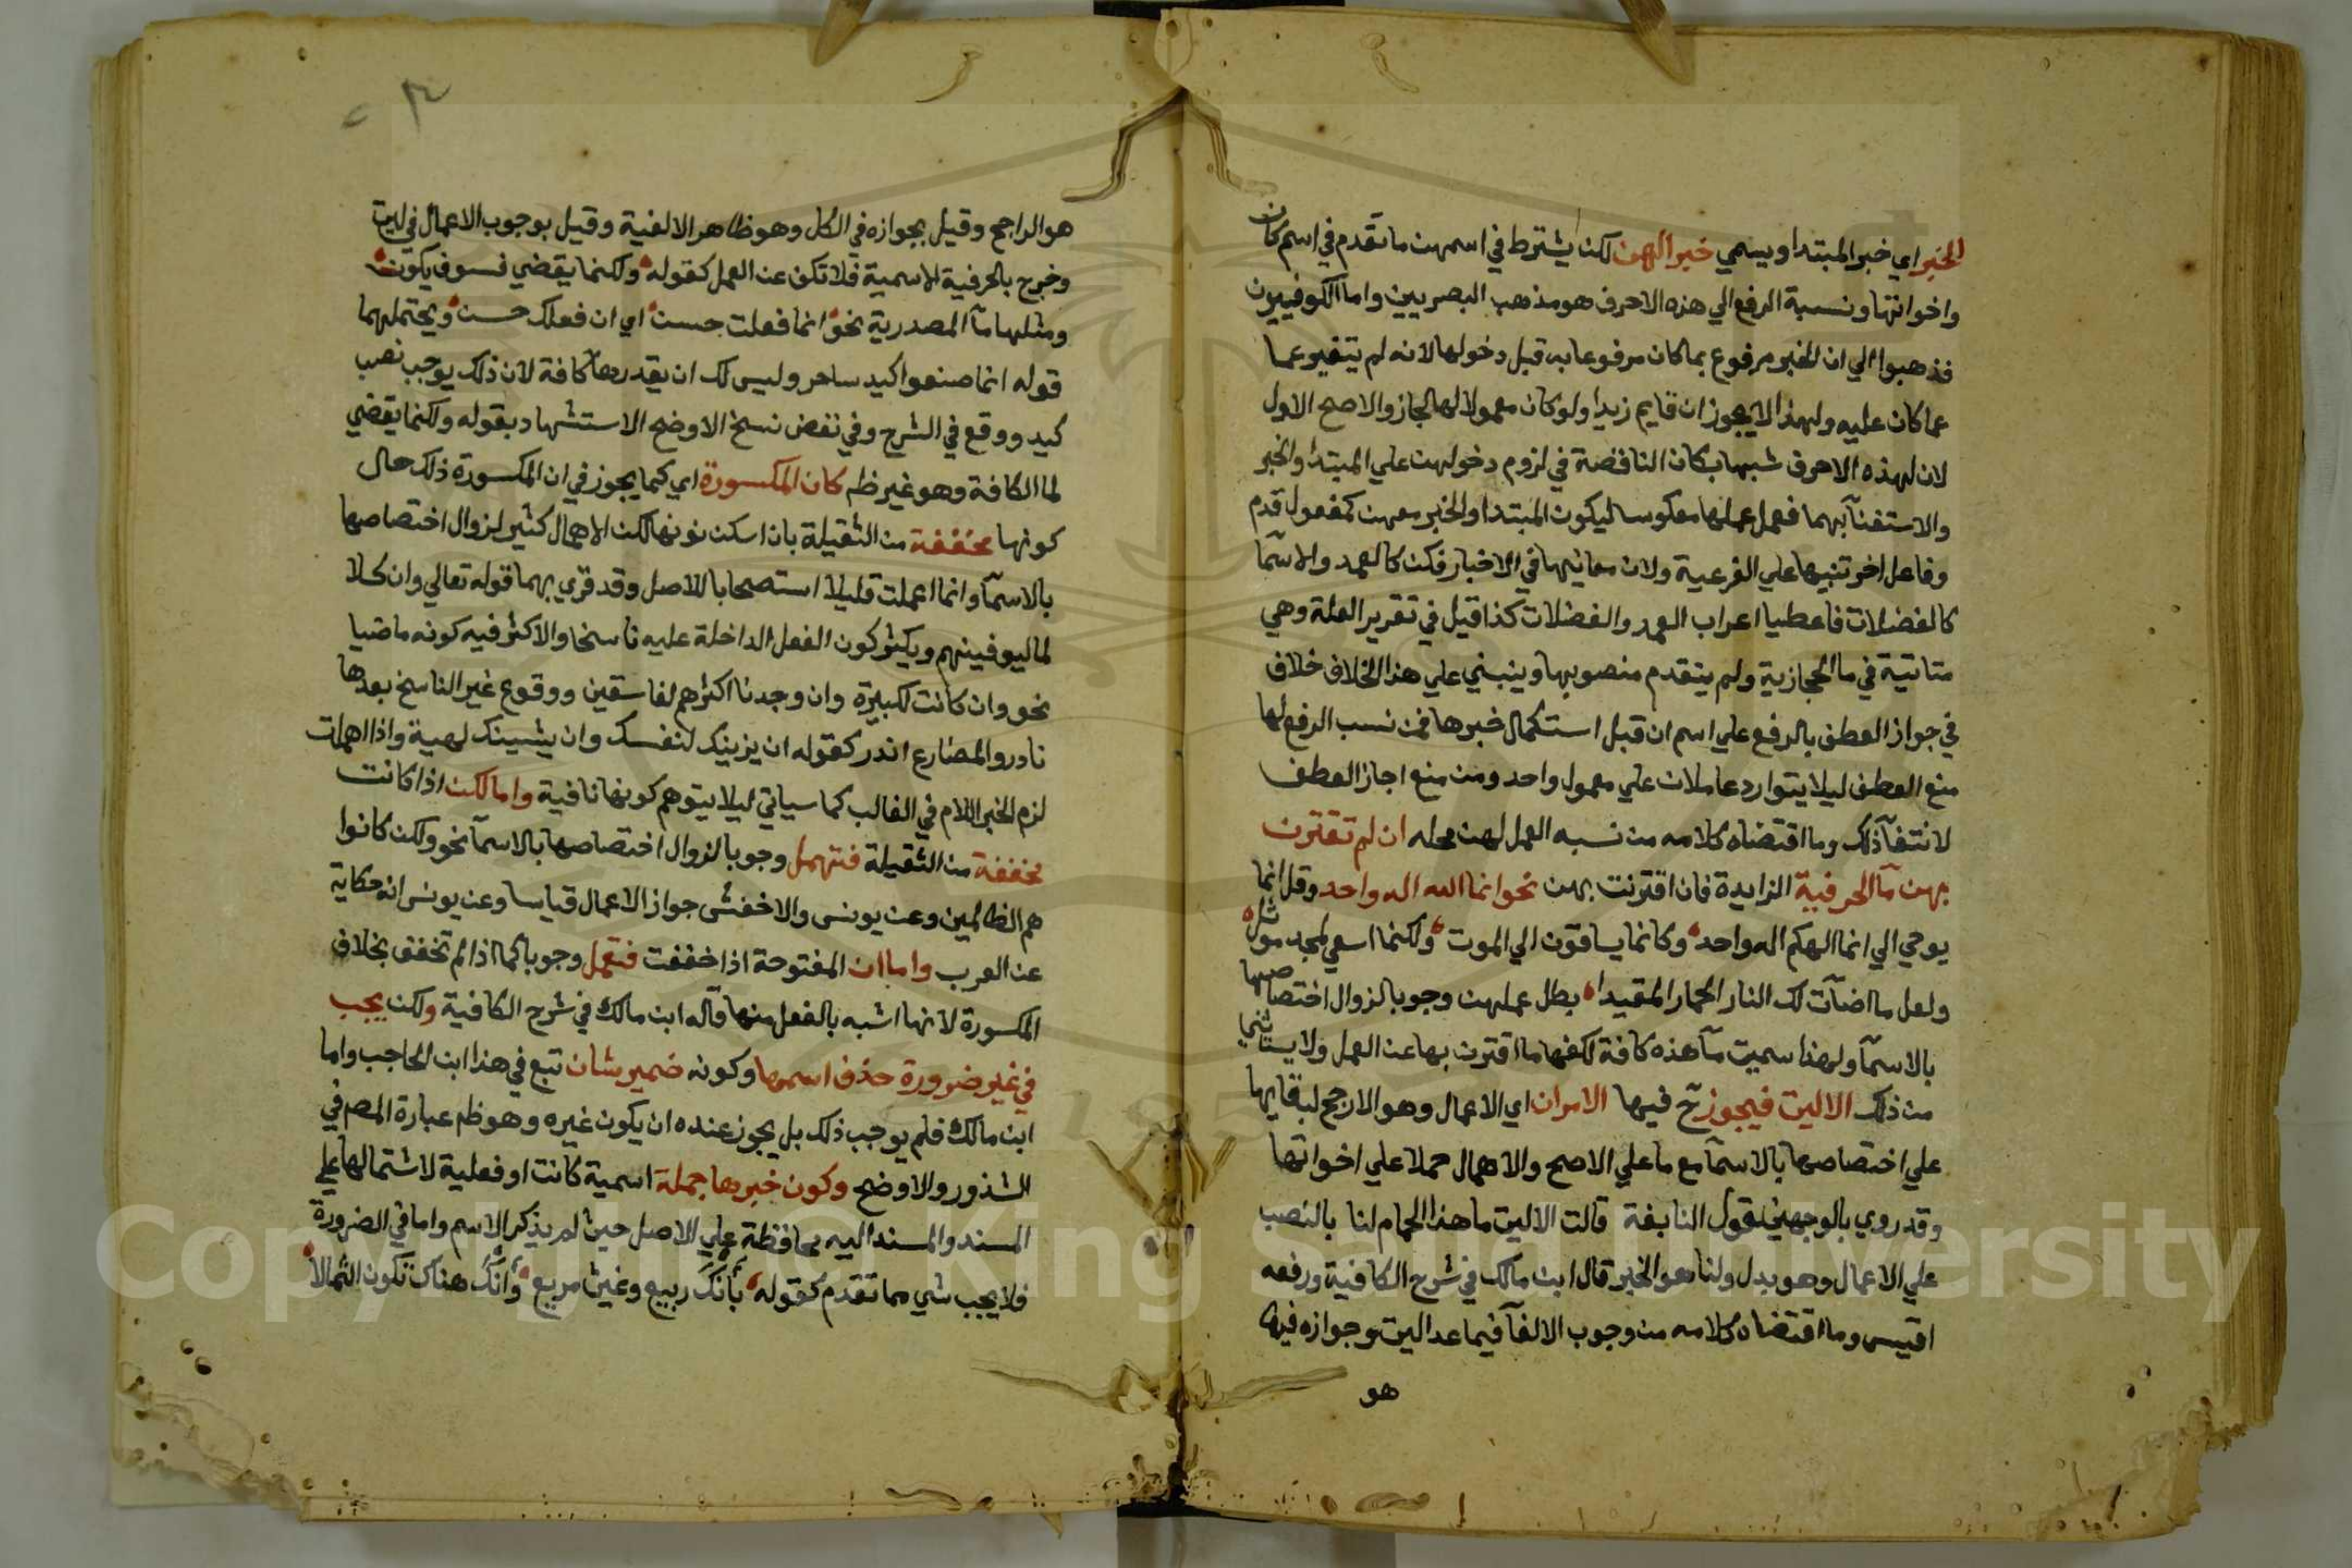 الخبر اي خبر المبتدا ويسمي خبرا لهن لكن يشترط في اسمهن ما تقدم في اسم كان
واخواتها ونسبة الرفع الي هذه الاحرف هو مذهب البصريين واما الكوفيون
فذهبوا الي ان الخبر مرفوع بما كان مرفوعا به قبل دخولها لانه لم يتغير عما
عما كان عليه ولهذا لا يجوز ان قايم زيدا ولو كان معمولا لها لجاز والاصح الاول
لان لهذه الاحرف شبها بكان الناقصة في لزوم دخولهن علي المبتدا والخبر
والاستغنآ بهما فعمل عملها معكوسا ليكون المبتدا والخبر معهن كمفعول قدم
وفاعل اخر تنبيها علي الفرعية ولان معانيها في الاخبار فكن كالعمد والاسما
كالفضلات فاعطيا اعراب العمد والفضلات كذا قيل في تقرير العلة وهي
متاتية في ما الحجازية ولم يتقدم منصوبها وينبني علي هذا الخلاف خلاف
في جواز العطف بالرفع علي اسم ان قبل استكمال خبرها فمن نسب الرفع لها
منع العطف ليلا يتوارد عاملان علي معمول واحد ومن منع اجاز العطف
لانتفآ ذلك وما اقتضاه كلامه من نسبه العمل لهن محله ان لم تقترن
بهن مآ الحرفية الزايدة فان اقترنت بهن نحو انما الله اله واحد وقل انما
يوحي الي انما الهكم اله واحد وكانما يساقون الي الموت ولكنما اسعي لمجد موثل
ولعل ما اضآت لك النار الحمار المقيدا بطل عملهن وجوبا لزوال اختصاصها
بالاسمآ ولهذا سميت مآ هذه كافة لكفها ما اقترن بها عن العمل ولا يستثنى
من ذلك الا ليت فيجوز ح فيها الامران اي الاعمال وهو الارجح لبقايها
علي اختصاصها بالاسمآ مع ما علي الاصح والاهمال حملا علي اخواتها
وقد روي بالوجهين قول النابغة قالت الا ليت ما هذا الحمام لنا بالنصب
علي الاعمال وهو بدل ولنا هو الخبر قال ابن مالك في شرح الكافية ورفعه
اقيس وما اقتضاه كلامه من وجوب الالغآ فيما عدا ليت وجوازه فيها
هو
هو الراجح وقيل بجوازه في الكل وهو ظاهر الالفية وقيل بوجوب الاعمال في ليت
وخرج بالحرفية الاسمية فلا تكف عن العمل كقوله ولكنما يقضي فسوف يكون
ومثلها مآ المصدرية نحو انما فعلت حسن اي ان فعلك حسن ويحتملهما
قوله انما صنعوا كيد ساحر وليس لك ان يقدرها كافة لان ذلك يوجب نصب
كيد ووقع في الشرح وفي نقض نسخ الاوضح الاستشهاد بقوله ولكنما يقضي
لما الكافة وهو غير ظم كان المكسورة اي كما يجوز في ان المكسورة ذلك حال
كونها مخففة من الثقيلة بان اسكن نونها لكن الاهمال كثير لزوال اختصاصها
بالاسمآ وانما اعملت قليلا استصحابا للاصل وقد قري بهما قوله تعالي وان كلا
لما ليوفينهم ويكثر كون الفعل الداخلة عليه ناسخا والاكثر فيه كونه ماضيا
نحو وان كانت لكبيرة وان وجدنا اكثرهم لفاسقين ووقوع غير الناسخ بعدها
نادر والمضارع اندر كقوله ان يزينك لنفسك وان يشينك لهية واذا اهملت
لزم الخبر اللام في الغالب كما سياتي ليلا يتوهم كونها نافية واما لكن اذا كانت
مخففة من الثقيلة فتهمل وجوبا لزوال اختصاصها بالاسمآ نحو ولكن كانوا
هم الظالمين وعن يونس والاخفش جواز الاعمال قياسا وعن يونس انه حكاية
عن العرب واما ان المفتوحة اذا خففت فتعمل وجوبا كما اذا لم تخفف بخلاف
المكسورة لانها اشبه بالفعل منها قاله ابن مالك في شرح الكافية ولكن يجب
في غير ضرورة حذف اسمها وكونه ضمير شان تبع في هذا ابن الحاجب واما
ابن مالك فلم يوجب ذلك بل يجوز عنده ان يكون غيره وهو ظم عبارة المص في
الشذور والاوضح وكون خبرها جملة اسمية كانت او فعلية لاشتمالها علي
المسند والمسند اليه محافظة علي الاصل حيث لم يذكر الاسم واما في الضرورة
فلا يجب شي مما تقدم كقوله بأنك ربيع وغيث مريع وأنك هناك تكون الثمالا